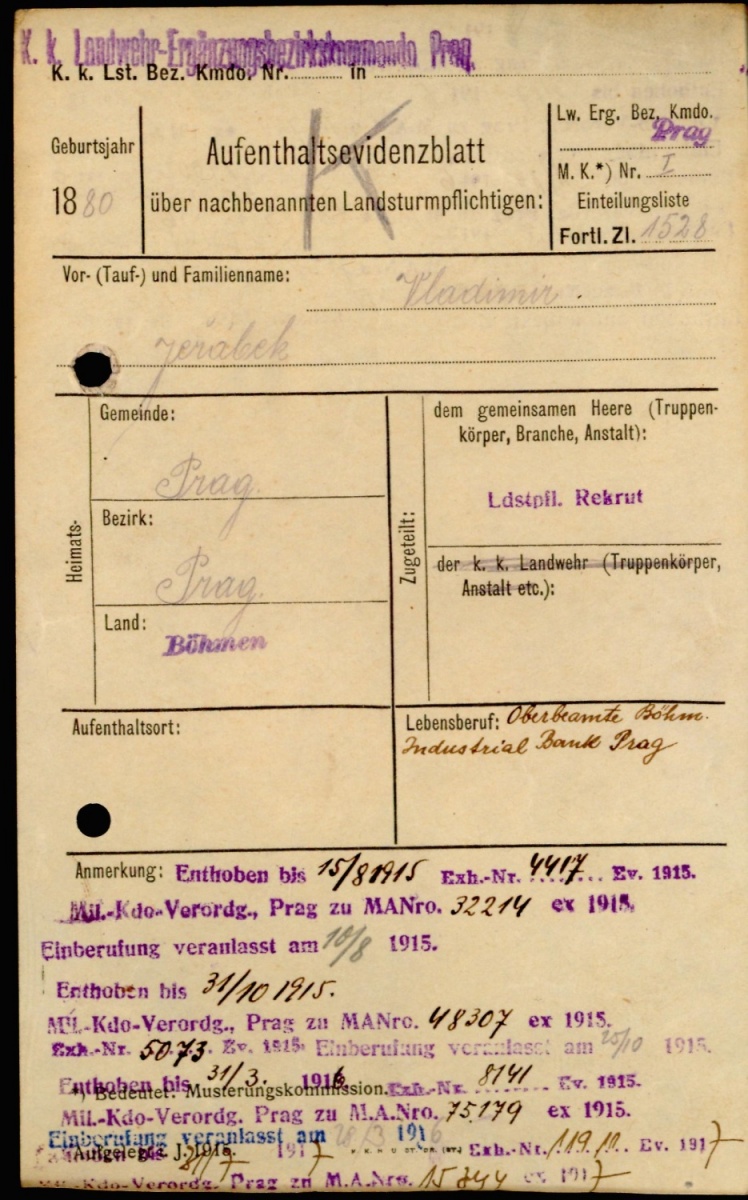 K. k. Landwehr-Ergänzungsbezirkskommando Prag.
K. k. Lst. Bez. Kmdo. Nr. in
Geburtsjahr
1880
K
Aufenthaltsevidenzblatt
über nachbenannten Landsturmpflichtigen:
Lw. Erg. Bez. Kmdo.
Prag
M. K.*) Nr. I
Einteilungsliste
Fortl. Zl. 1528
Vor- (Tauf-) und Familienname: Vladimir
Jeřábek
Heimats-
Gemeinde:
Prag.
Bezirk:
Prag.
Land:
Böhmen
Zugeteilt:
dem gemeinsamen Heere (Truppen-
körper, Branche, Anstalt):
Ldstpfl. Rekrut
der k. k. Landwehr (Truppenkörper,
Anstalt etc.):
Aufenthaltsort:
Lebensberuf: Oberbeamte Böhm.
Industrial Bank Prag
Anmerkung: Enthoben bis 15/8 1915 Exh.-Nr. 4417 Ev. 1915.
Mil.-Kdo-Verordg., Prag zu MANro. 32214 ex 1915.
Einberufung veranlasst am 10/8 1915.
Enthoben bis 31/10 1915.
Mil.-Kdo-Verordg., Prag zu MANro. 48307 ex 1915.
Exh.-Nr. 5073. Ev. 1915. Einberufung veranlasst am 25/10 1915.
Enthoben bis 31/3. 1916 Exh.-Nr. 8141 Ev. 1915.
*) Bedeutet: Musterungskommission.
Mil.-Kdo-Verordg. Prag zu M.A.Nro. 75179 ex 1915.
Einberufung veranlasst am 28/3 1916
Aufgelegt 1917 Exh.-Nr. Ev. 1917
Mil.-Kdo-Verordg. Prag zu M.A.Nro. 15344 ex 1917